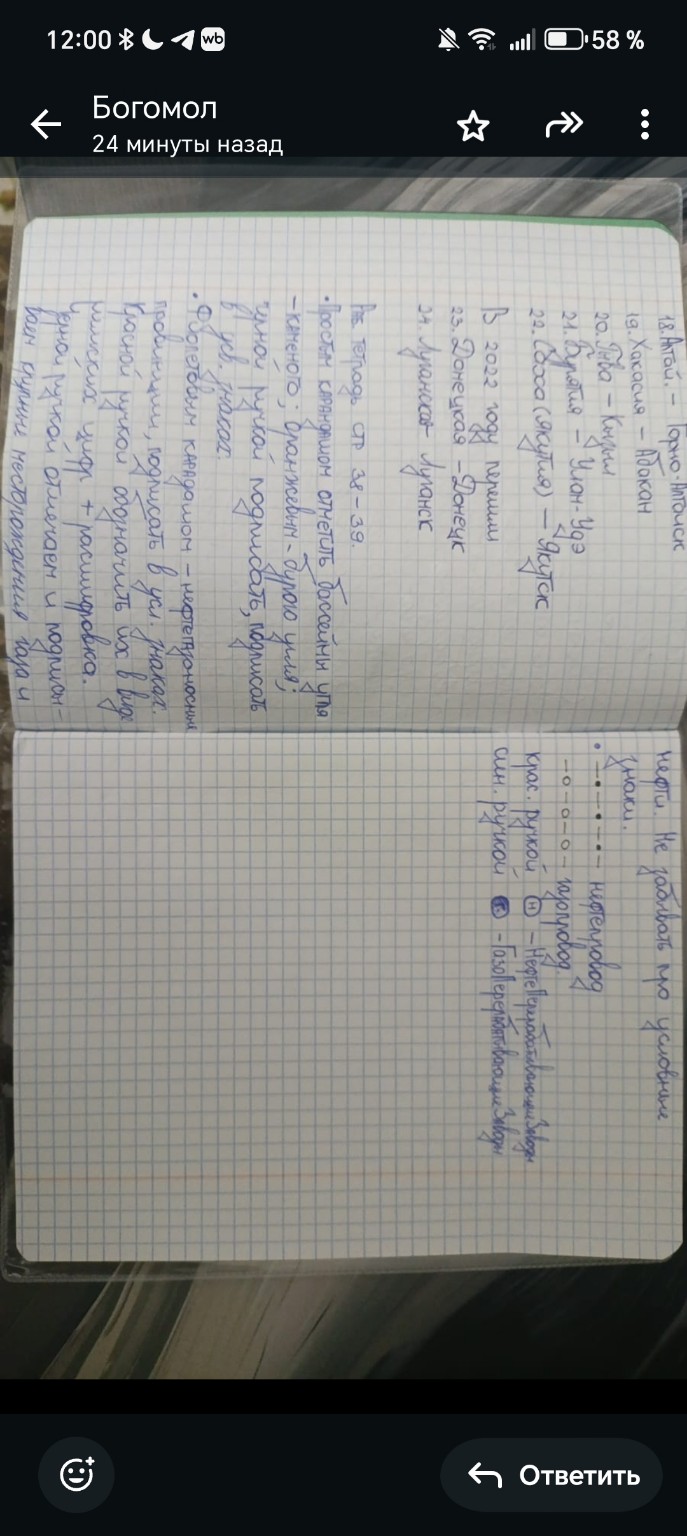 12:00 wb 58 %
Богомол
24 минуты назад
18. Алтай. – Горно-Алтайск
19. Хакасия – Абакан
20. Тыва – Кызыл
21. Бурятия – Улан-Удэ
22. Саха (Якутия) – Якутск
В 2022 году перешли
23. Донецкая – Донецк
24. Луганская – Луганск
Раб. тетрадь стр 38-39.
• Простым карандашом отметить бассейны угля
– каменного; оранжевым – бурого угля;
чёрной ручкой подписать, подписать
в усл. знаках.
• Фиолетовым карандашом – нефтегазоносные
провинции, подписать в усл. знаках.
Красной ручкой обозначить их в виде
римских цифр + расшифровка.
Чёрной ручкой отмечаем и подписы-
ваем крупные месторождения газа и
нефти. Не забывать про условные
знаки.
• –•–•–•– нефтепровод
–о–о–о– газопровод.
крас. ручкой Н – НефтеПерерабатывающие Заводы
син. ручкой Г – ГазоПерерабатывающие Заводы
Ответить